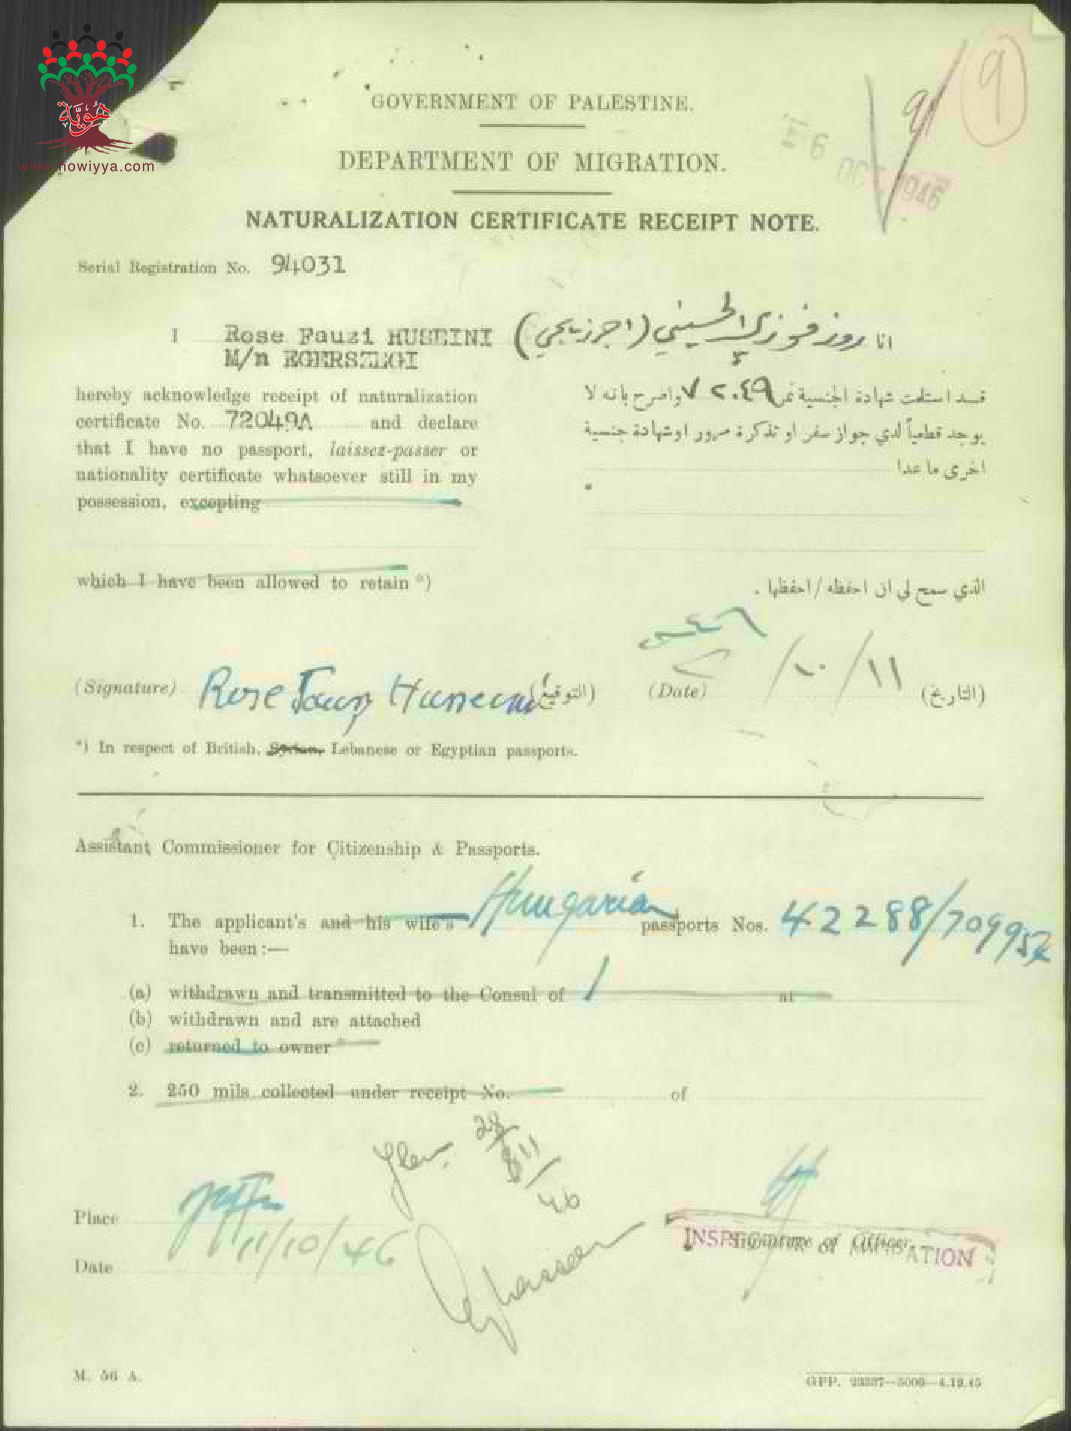 هُوِيَّة
www.howiyya.com
9
91
6 OCT 1946
GOVERNMENT OF PALESTINE.
DEPARTMENT OF MIGRATION.
NATURALIZATION CERTIFICATE RECEIPT NOTE.
Serial Registration No. 94031
I Rose Fauzi HUSEINI
M/n EGERSZEGI
انا روز فوزي الحسيني (اجرزيجي)
hereby acknowledge receipt of naturalization
certificate No. 72049A and declare
that I have no passport, laissez-passer or
nationality certificate whatsoever still in my
possession, excepting
قد استلمت شهادة الجنسية نمر ٧٢٠٤٩ واصرح بانه لا
يوجد قطعياً لدي جواز سفر او تذكرة مرور او شهادة جنسية
اخرى ما عدا
which I have been allowed to retain *)
الذي سمح لي ان احفظه / احفظها .
(Signature) Rose Fauzi Husseini (التوقيع)
(Date) ١١/١٠/ ٤٦ (التاريخ)
*) In respect of British, Syrian, Lebanese or Egyptian passports.
Assistant Commissioner for Citizenship & Passports.
1. The applicant's and his wife's Hungarian passports Nos. 42288/709954
have been :—
(a) withdrawn and transmitted to the Consul of at
(b) withdrawn and are attached
(c) returned to owner *
2. 250 mils collected under receipt No. of
28/11/46
Place
Date 11/10/46
Signature of Officer.
INSPECTOR OF MIGRATION
M. 56 A.
GPP. 23387—5000—4.12.45